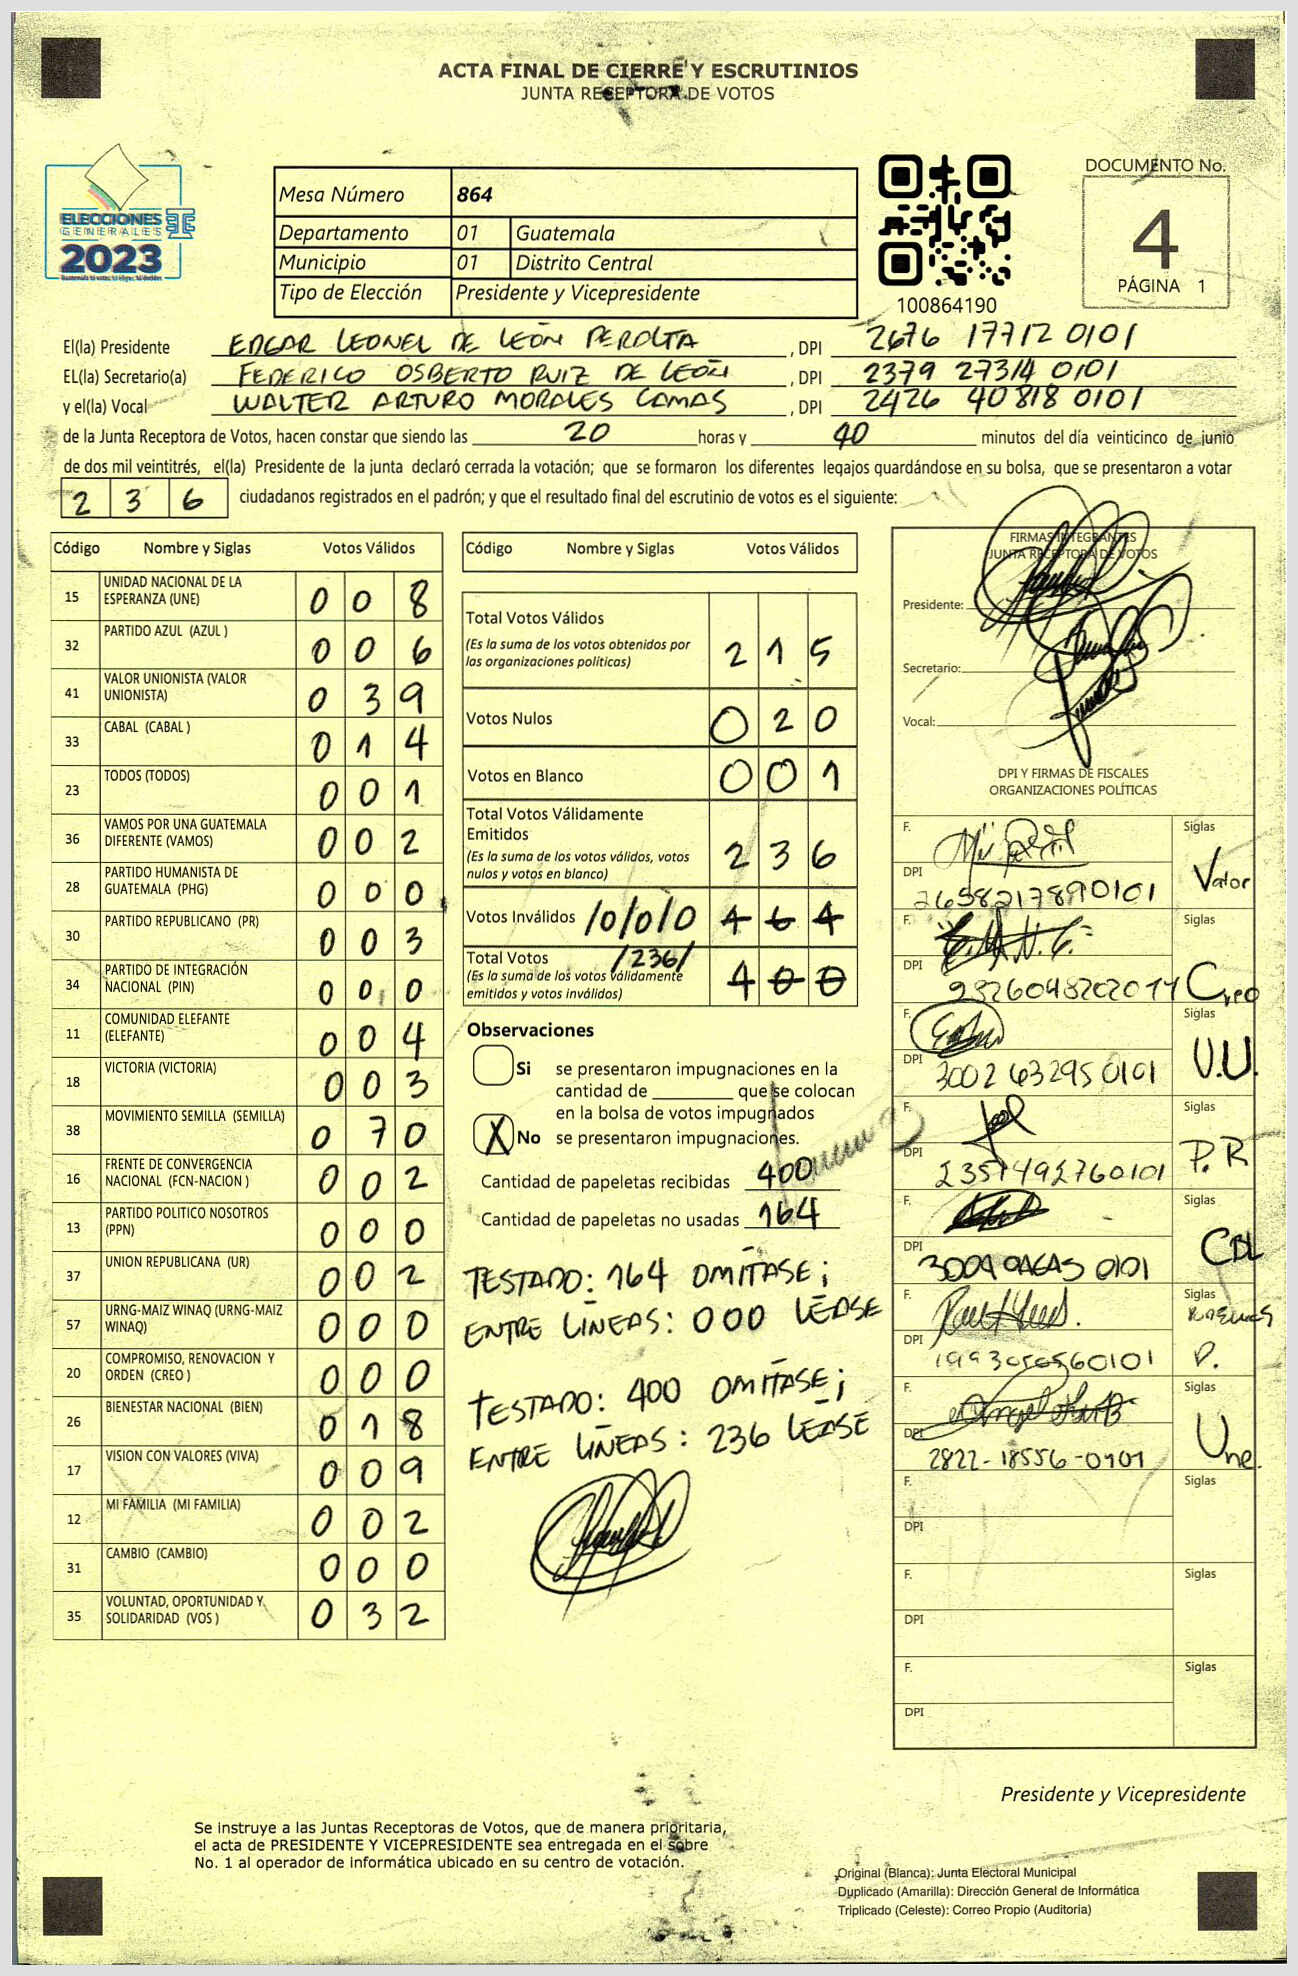 ACTA FINAL DE CIERRE Y ESCRUTINIOS
JUNTA RECEPTORA DE VOTOS
ELECCIONES
GENERALES
2023
Mesa Número 864
Departamento 01 Guatemala
Municipio 01 Distrito Central
Tipo de Elección Presidente y Vicepresidente
100864190
DOCUMENTO No.
4
PÁGINA 1
El(la) Presidente EDGAR LEONEL DE LEÓN PERALTA, DPI 2676 17712 0101
EL(la) Secretario(a) FEDERICO OSBERTO RUIZ DE LEÓN, DPI 2379 27314 0101
y el(la) Vocal WALTER ARTURO MORALES CAMAS, DPI 2426 40818 0101
de la Junta Receptora de Votos, hacen constar que siendo las 20 horas y 40 minutos del día veinticinco de junio
de dos mil veintitrés, el(la) Presidente de la junta declaró cerrada la votación; que se formaron los diferentes legajos quardándose en su bolsa, que se presentaron a votar
236 ciudadanos registrados en el padrón; y que el resultado final del escrutinio de votos es el siguiente:
Código Nombre y Siglas Votos Válidos
15 UNIDAD NACIONAL DE LA ESPERANZA (UNE) 008
32 PARTIDO AZUL (AZUL ) 006
41 VALOR UNIONISTA (VALOR UNIONISTA) 039
33 CABAL (CABAL ) 014
23 TODOS (TODOS) 001
36 VAMOS POR UNA GUATEMALA DIFERENTE (VAMOS) 002
28 PARTIDO HUMANISTA DE GUATEMALA (PHG) 000
30 PARTIDO REPUBLICANO (PR) 003
34 PARTIDO DE INTEGRACIÓN NACIONAL (PIN) 000
11 COMUNIDAD ELEFANTE (ELEFANTE) 004
18 VICTORIA (VICTORIA) 003
38 MOVIMIENTO SEMILLA (SEMILLA) 070
16 FRENTE DE CONVERGENCIA NACIONAL (FCN-NACION ) 002
13 PARTIDO POLITICO NOSOTROS (PPN) 000
37 UNION REPUBLICANA (UR) 002
57 URNG-MAIZ WINAQ (URNG-MAIZ WINAQ) 000
20 COMPROMISO, RENOVACION Y ORDEN (CREO ) 000
26 BIENESTAR NACIONAL (BIEN) 018
17 VISION CON VALORES (VIVA) 009
12 MI FAMILIA (MI FAMILIA) 002
31 CAMBIO (CAMBIO) 000
35 VOLUNTAD, OPORTUNIDAD Y SOLIDARIDAD (VOS ) 032
Código Nombre y Siglas Votos Válidos
Total Votos Válidos
(Es la suma de los votos obtenidos por
las organizaciones políticas) 215
Votos Nulos 020
Votos en Blanco 001
Total Votos Válidamente
Emitidos
(Es la suma de los votos válidos, votos
nulos y votos en blanco) 236
Votos Inválidos /0/0/0 464
Total Votos /236/
(Es la suma de los votos válidamente
emitidos y votos inválidos) 400
Observaciones
Si se presentaron impugnaciones en la
cantidad de ________ que se colocan
en la bolsa de votos impugnados
X No se presentaron impugnaciones.
Cantidad de papeletas recibidas 400
Cantidad de papeletas no usadas 164
TESTADO: 164 OMÍTASE;
ENTRE LÍNEAS: 000 LÉASE
TESTADO: 400 OMÍTASE;
ENTRE LÍNEAS: 236 LÉASE
FIRMAS INTEGRANTES
JUNTA RECEPTORA DE VOTOS
Presidente:
Secretario:
Vocal:
DPI Y FIRMAS DE FISCALES
ORGANIZACIONES POLÍTICAS
F. Siglas Valor
DPI 2658217890101
F. Siglas Creo
DPI
F. Siglas V.U.
DPI 3002 63295 0101
F. Siglas P.R
DPI 2351492760101
F. Siglas CBL
DPI
F. Siglas
P.
DPI
F. Siglas Une.
DPI 2822-18556-0101
F. Siglas
DPI
F. Siglas
DPI
F. Siglas
DPI
Presidente y Vicepresidente
Se instruye a las Juntas Receptoras de Votos, que de manera prioritaria,
el acta de PRESIDENTE Y VICEPRESIDENTE sea entregada en el sobre
No. 1 al operador de informática ubicado en su centro de votación.
Original (Blanca): Junta Electoral Municipal
Duplicado (Amarilla): Dirección General de Informática
Triplicado (Celeste): Correo Propio (Auditoria)